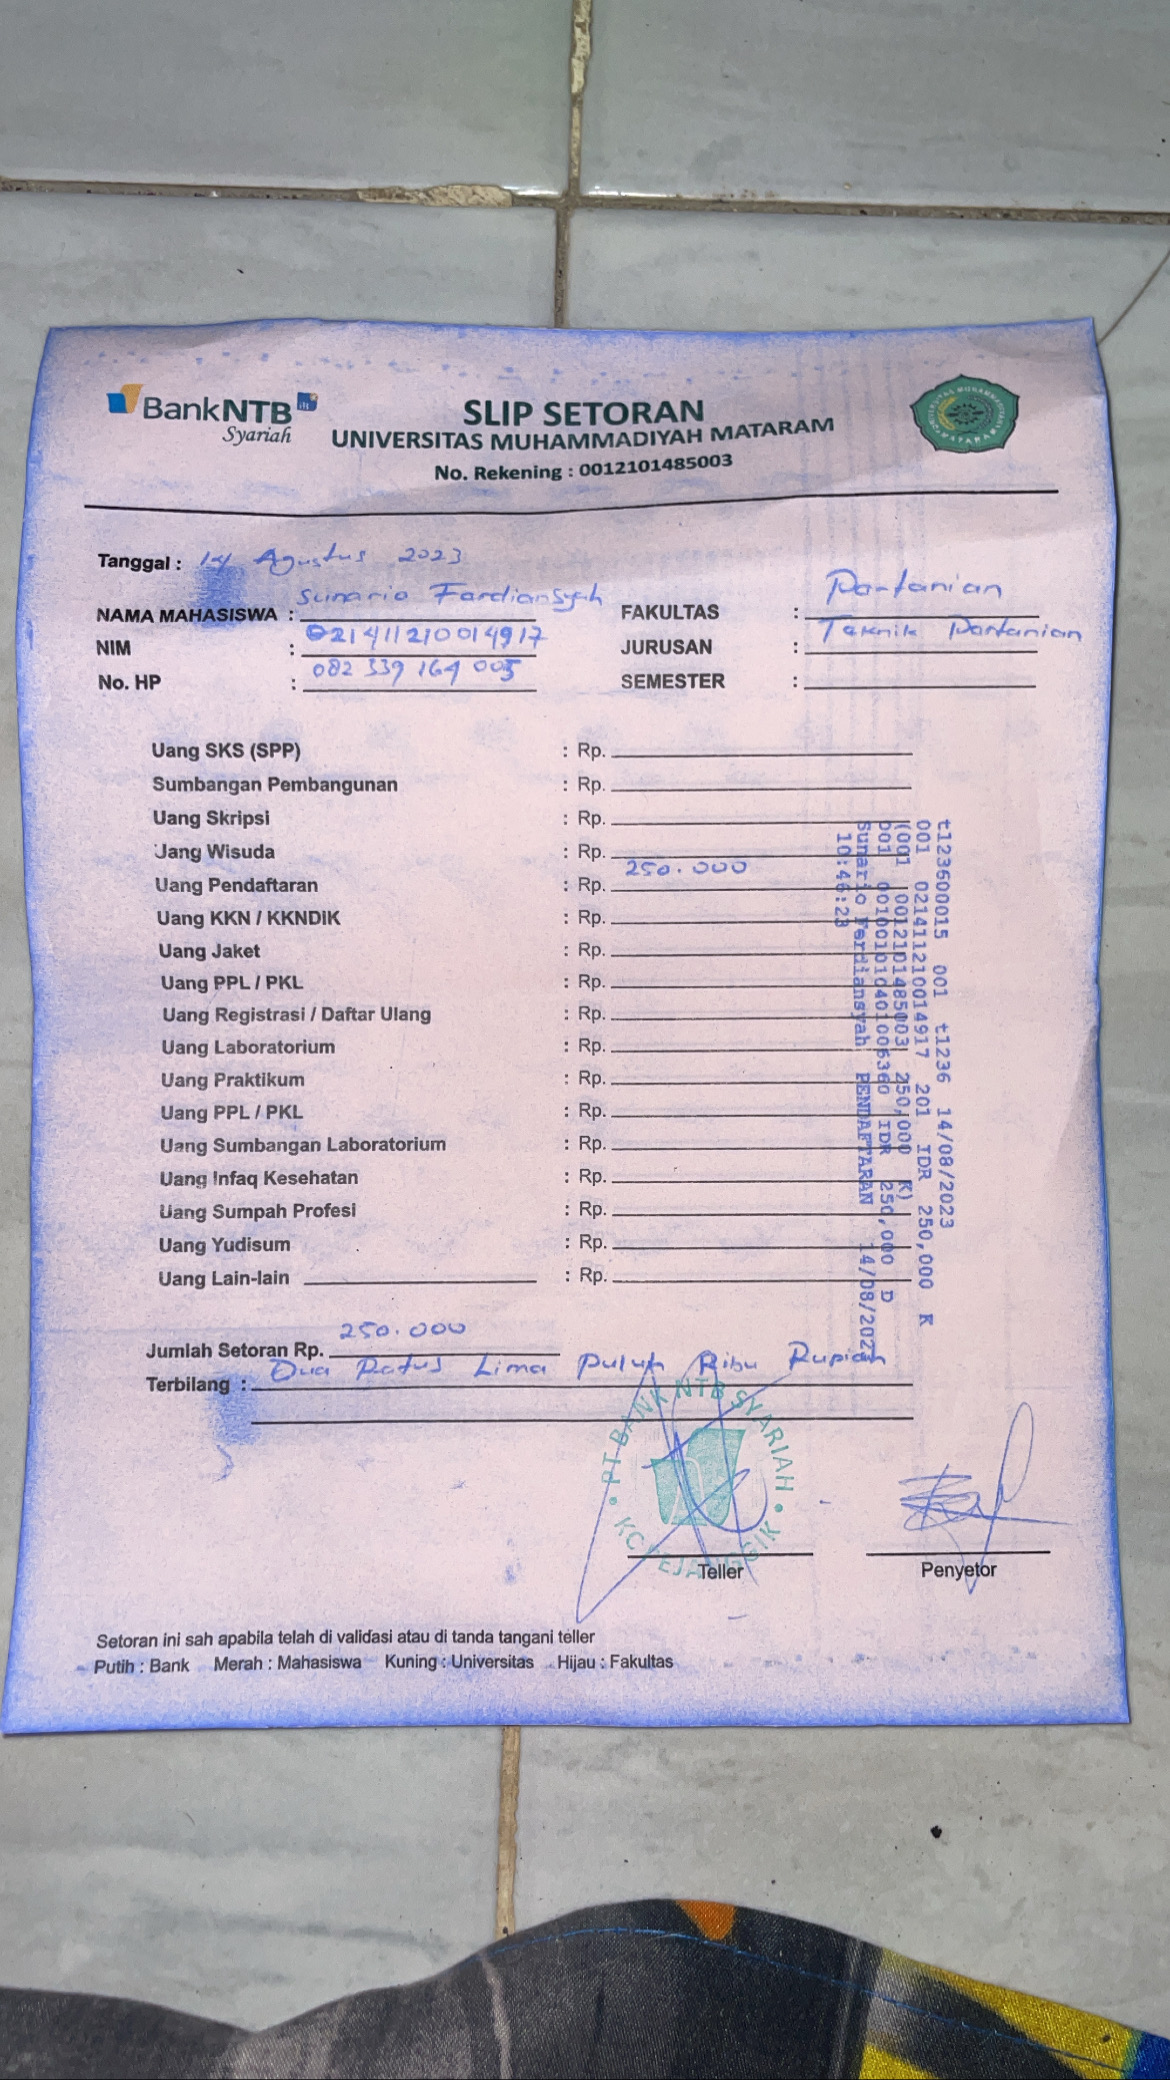 BankNTB
Syariah
SLIP SETORAN
UNIVERSITAS MUHAMMADIYAH MATARAM
No. Rekening : 0012101485003
Tanggal : 14 Agustus 2023
NAMA MAHASISWA : Sunario Fardiansyah
NIM : 021411210014917
No. HP : 082 339 164 005
FAKULTAS : Partanian
JURUSAN : Teknik Partanian
SEMESTER :
Uang SKS (SPP) : Rp.
Sumbangan Pembangunan : Rp.
Uang Skripsi : Rp.
Jang Wisuda : Rp.
Uang Pendaftaran : Rp. 250.000
Uang KKN / KKNDIK : Rp.
Uang Jaket : Rp.
Uang PPL / PKL : Rp.
Uang Registrasi / Daftar Ulang : Rp.
Uang Laboratorium : Rp.
Uang Praktikum : Rp.
Uang PPL / PKL : Rp.
Uang Sumbangan Laboratorium : Rp.
Uang Infaq Kesehatan : Rp.
Uang Sumpah Profesi : Rp.
Uang Yudisum : Rp.
Uang Lain-lain : Rp.
t123600015 001 t1236 14/08/2023
001 021411210014917 201 IDR 250,000 K
(001 0012101485003 250,000 K)
001 001001010401006360 IDR 250,000 D
Sunario Ferdiansyah PENDAFTARAN 14/08/2023
10:46:23
Jumlah Setoran Rp. 250.000
Terbilang : Dua Ratus Lima Puluh Ribu Rupiah
PT BANK NTB SYARIAH
KC PEJANGGIK
Teller
Penyetor
Setoran ini sah apabila telah di validasi atau di tanda tangani teller
Putih : Bank Merah : Mahasiswa Kuning : Universitas Hijau : Fakultas